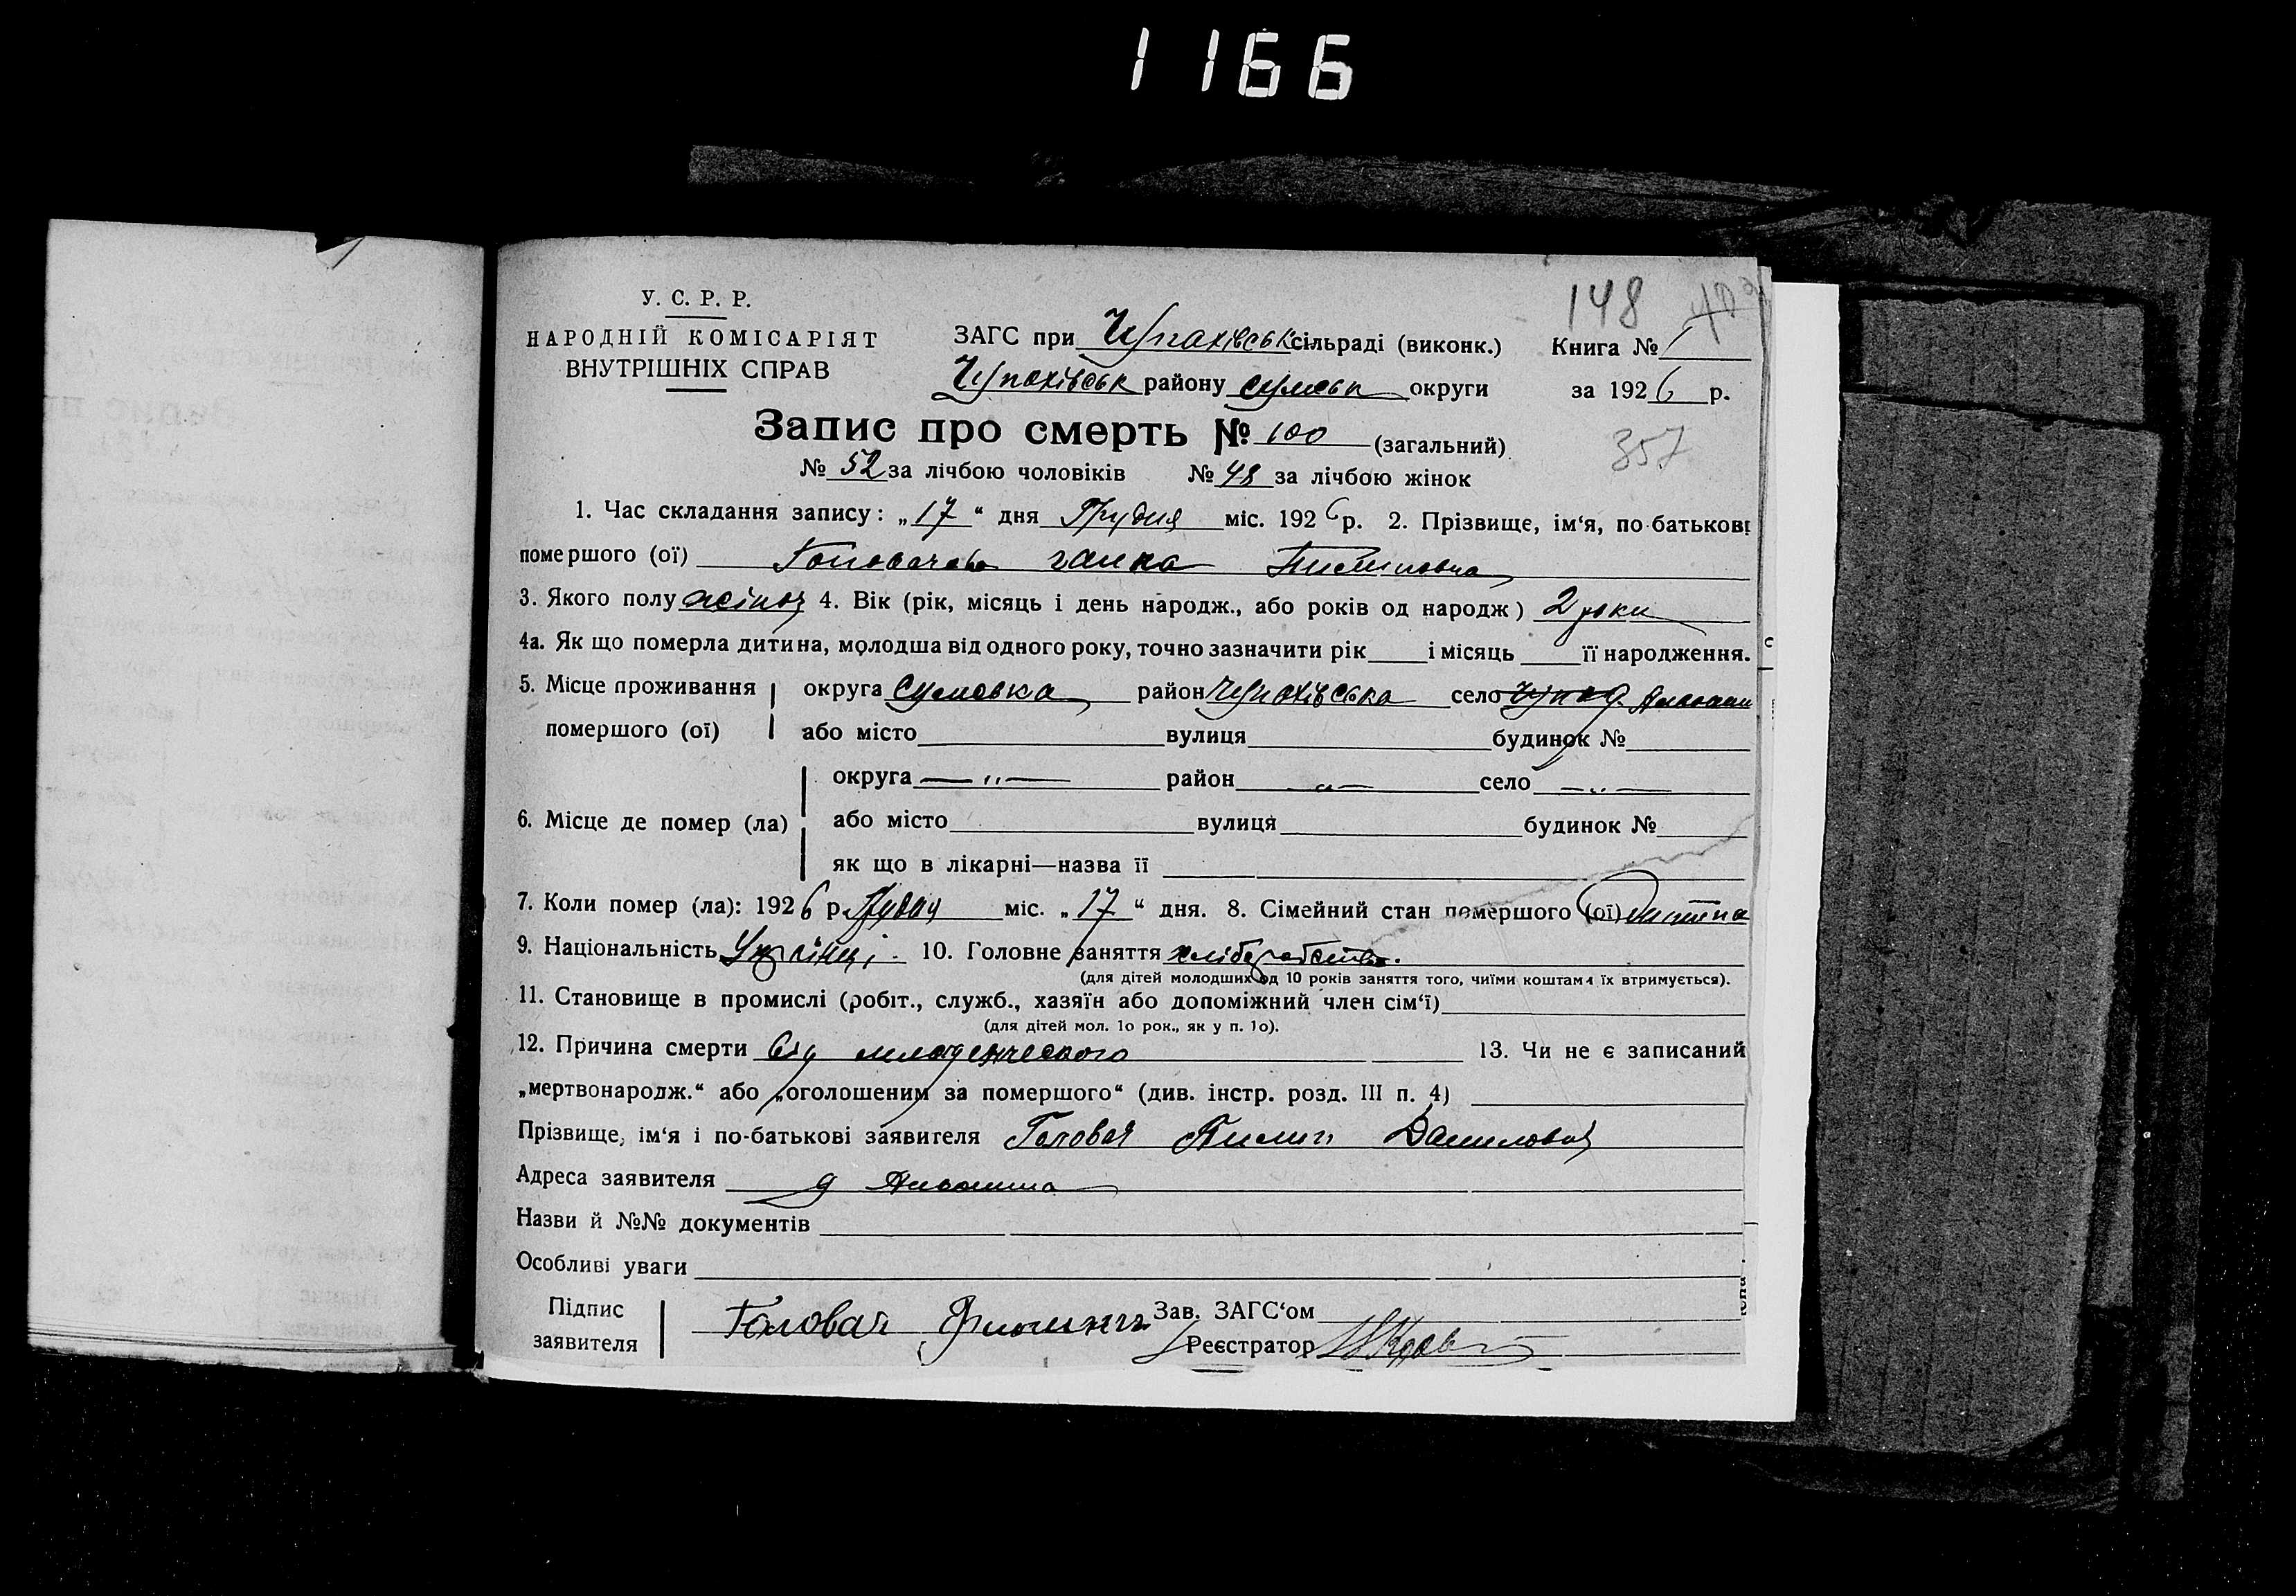 1166
148
У. С. Р. Р.
НАРОДНІЙ КОМІСАРІЯТ
ВНУТРІШНІХ СПРАВ
ЗАГС при Чупахівськ сільраді (виконк.) Книга № 1
Чупахівськ району сумськ округи за 1926 р.
Запис про смерть № 100 (загальний)
357
№ 52 за лічбою чоловіків № 48 за лічбою жінок
1. Час складання запису: „17“ дня Грудня міс. 1926 р. 2. Прізвище, ім‘я, по-батькові
помершого (ої) ганка
3. Якого полу жіноч 4. Вік (рік, місяць і день народж., або років од народж) 2 роки
4а. Як що померла дитина, молодша від одного року, точно зазначити рік і місяць її народження.
5. Місце проживання округа Сумська район Чупахівська село
помершого (ої) або місто вулиця будинок №
округа — „ — район — „ — село — „ —
6. Місце де помер (ла) або місто вулиця будинок №
як що в лікарні—назва її
7. Коли помер (ла): 1926 р. Грудня міс. „17“ дня. 8. Сімейний стан помершого (ої) дитина
9. Національність Українці. 10. Головне заняття хліборобство.
(для дітей молодших од 10 років заняття того, чиїми коштами їх втримується).
11. Становище в промислі (робіт., служб., хазяїн або допоміжний член сім‘ї)
(для дітей мол. 1о рок., як у п. 1о).
12. Причина смерти від младенческого 13. Чи не є записаний
„мертвонародж.“ або „оголошеним за помершого“ (див. інстр. розд. III п. 4)
Прізвище, ім‘я і по-батькові заявителя Головач Данилович
Адреса заявителя
Назви й №№ документів
Особливі уваги
Підпис Головач Зав. ЗАГС‘ом
заявителя Реєстратор